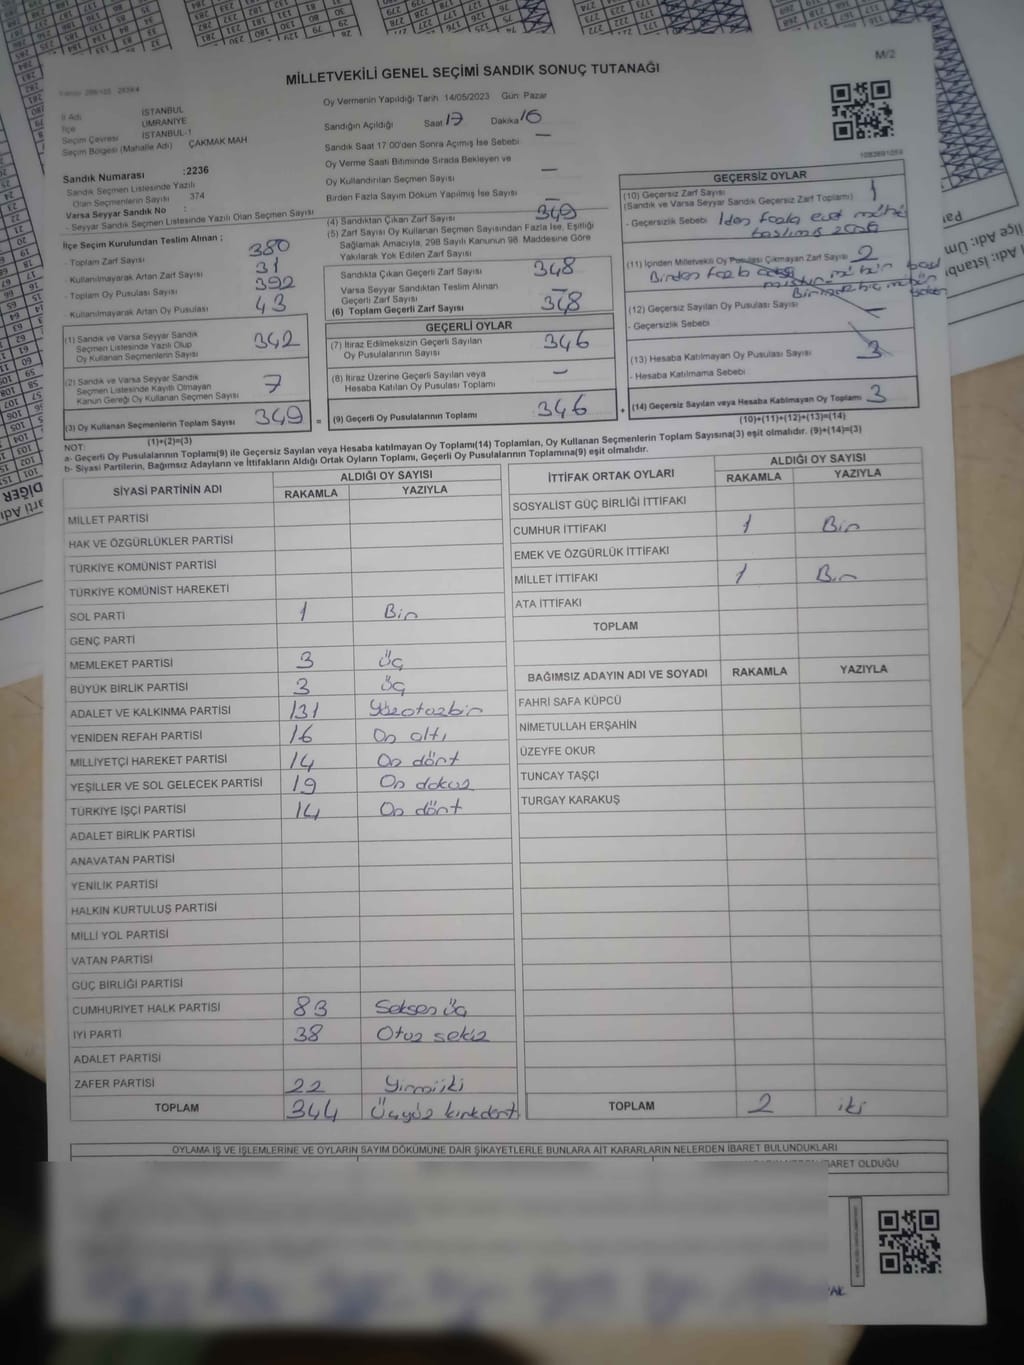 M/2
MİLLETVEKİLİ GENEL SEÇİMİ SANDIK SONUÇ TUTANAĞI
İl Adı İSTANBUL
İlçe ÜMRANİYE
Seçim Çevresi İSTANBUL-1
Seçim Bölgesi (Mahalle Adı) ÇAKMAK MAH
Oy Vermenin Yapıldığı Tarih 14/05/2023 Gün: Pazar
Sandığın Açıldığı Saat 17 Dakika 16
Sandık Saat 17:00'den Sonra Açılmış İse Sebebi —
Oy Verme Saati Bitiminde Sırada Bekleyen ve
Oy Kullandırılan Seçmen Sayısı —
Birden Fazla Sayım Döküm Yapılmış İse Sayısı —
Sandık Numarası :2236
Sandık Seçmen Listesinde Yazılı
Olan Seçmenlerin Sayısı 374
Varsa Seyyar Sandık No :
- Seyyar Sandık Seçmen Listesinde Yazılı Olan Seçmen Sayısı
İlçe Seçim Kurulundan Teslim Alınan ;
- Toplam Zarf Sayısı 380
- Kullanılmayarak Artan Zarf Sayısı 31
- Toplam Oy Pusulası Sayısı 392
- Kullanılmayarak Artan Oy Pusulası 43
(1) Sandık ve Varsa Seyyar Sandık
Seçmen Listesinde Yazılı Olup
Oy Kullanan Seçmenlerin Sayısı 342
(2) Sandık ve Varsa Seyyar Sandık
Seçmen Listesinde Kayıtlı Olmayan
Kanun Gereği Oy Kullanan Seçmen Sayısı 7
(3) Oy Kullanan Seçmenlerin Toplam Sayısı 349 =
(1)+(2)=(3)
(4) Sandıktan Çıkan Zarf Sayısı 349
(5) Zarf Sayısı Oy Kullanan Seçmen Sayısından Fazla İse, Eşitliği
Sağlamak Amacıyla, 298 Sayılı Kanunun 98. Maddesine Göre
Yakılarak Yok Edilen Zarf Sayısı
Sandıkta Çıkan Geçerli Zarf Sayısı 348
Varsa Seyyar Sandıktan Teslim Alınan
Geçerli Zarf Sayısı —
(6) Toplam Geçerli Zarf Sayısı 348
GEÇERLİ OYLAR
(7) İtiraz Edilmeksizin Geçerli Sayılan
Oy Pusulalarının Sayısı 346
(8) İtiraz Üzerine Geçerli Sayılan veya
Hesaba Katılan Oy Pusulası Toplamı —
(9) Geçerli Oy Pusulalarının Toplamı 346 +
GEÇERSİZ OYLAR
(10) Geçersiz Zarf Sayısı
(Sandık ve Varsa Seyyar Sandık Geçersiz Zarf Toplamı) 1
- Geçersizlik Sebebi
(11) İçinden Milletvekili Oy Pusulası Çıkmayan Zarf Sayısı 2
(12) Geçersiz Sayılan Oy Pusulası Sayısı —
- Geçersizlik Sebebi
(13) Hesaba Katılmayan Oy Pusulası Sayısı 3
- Hesaba Katılmama Sebebi
(14) Geçersiz Sayılan veya Hesaba Katılmayan Oy Toplamı 3
(10)+(11)+(12)+(13)=(14)
NOT:
a- Geçerli Oy Pusulalarının Toplamı(9) ile Geçersiz Sayılan veya Hesaba katılmayan Oy Toplamı(14) Toplamları, Oy Kullanan Seçmenlerin Toplam Sayısına(3) eşit olmalıdır. (9)+(14)=(3)
b- Siyasi Partilerin, Bağımsız Adayların ve İttifakların Aldığı Ortak Oyların Toplamı, Geçerli Oy Pusulalarının Toplamına(9) eşit olmalıdır.
SİYASİ PARTİNİN ADI ALDIĞI OY SAYISI
RAKAMLA YAZIYLA
MİLLET PARTİSİ
HAK VE ÖZGÜRLÜKLER PARTİSİ
TÜRKİYE KOMÜNİST PARTİSİ
TÜRKİYE KOMÜNİST HAREKETİ
SOL PARTİ 1 Bir
GENÇ PARTİ
MEMLEKET PARTİSİ 3 Üç
BÜYÜK BİRLİK PARTİSİ 3 Üç
ADALET VE KALKINMA PARTİSİ 131 Yüzotuzbir
YENİDEN REFAH PARTİSİ 16 On altı
MİLLİYETÇİ HAREKET PARTİSİ 14 On dört
YEŞİLLER VE SOL GELECEK PARTİSİ 19 On dokuz
TÜRKİYE İŞÇİ PARTİSİ 14 On dört
ADALET BİRLİK PARTİSİ
ANAVATAN PARTİSİ
YENİLİK PARTİSİ
HALKIN KURTULUŞ PARTİSİ
MİLLİ YOL PARTİSİ
VATAN PARTİSİ
GÜÇ BİRLİĞİ PARTİSİ
CUMHURİYET HALK PARTİSİ 83 Seksen üç
İYİ PARTİ 38 Otuz sekiz
ADALET PARTİSİ
ZAFER PARTİSİ 22 Yirmiiki
TOPLAM 344 Üçyüz kırkdört
İTTİFAK ORTAK OYLARI ALDIĞI OY SAYISI
RAKAMLA YAZIYLA
SOSYALİST GÜÇ BİRLİĞİ İTTİFAKI
CUMHUR İTTİFAKI 1 Bir
EMEK VE ÖZGÜRLÜK İTTİFAKI
MİLLET İTTİFAKI 1 Bir
ATA İTTİFAKI
TOPLAM
BAĞIMSIZ ADAYIN ADI VE SOYADI RAKAMLA YAZIYLA
FAHRİ SAFA KÜPCÜ
NİMETULLAH ERŞAHİN
ÜZEYFE OKUR
TUNCAY TAŞÇI
TURGAY KARAKUŞ
TOPLAM 2 iki
OYLAMA İŞ VE İŞLEMLERİNE VE OYLARIN SAYIM DÖKÜMÜNE DAİR ŞİKAYETLERLE BUNLARA AİT KARARLARIN NELERDEN İBARET BULUNDUKLARI
BARET OLDUĞU